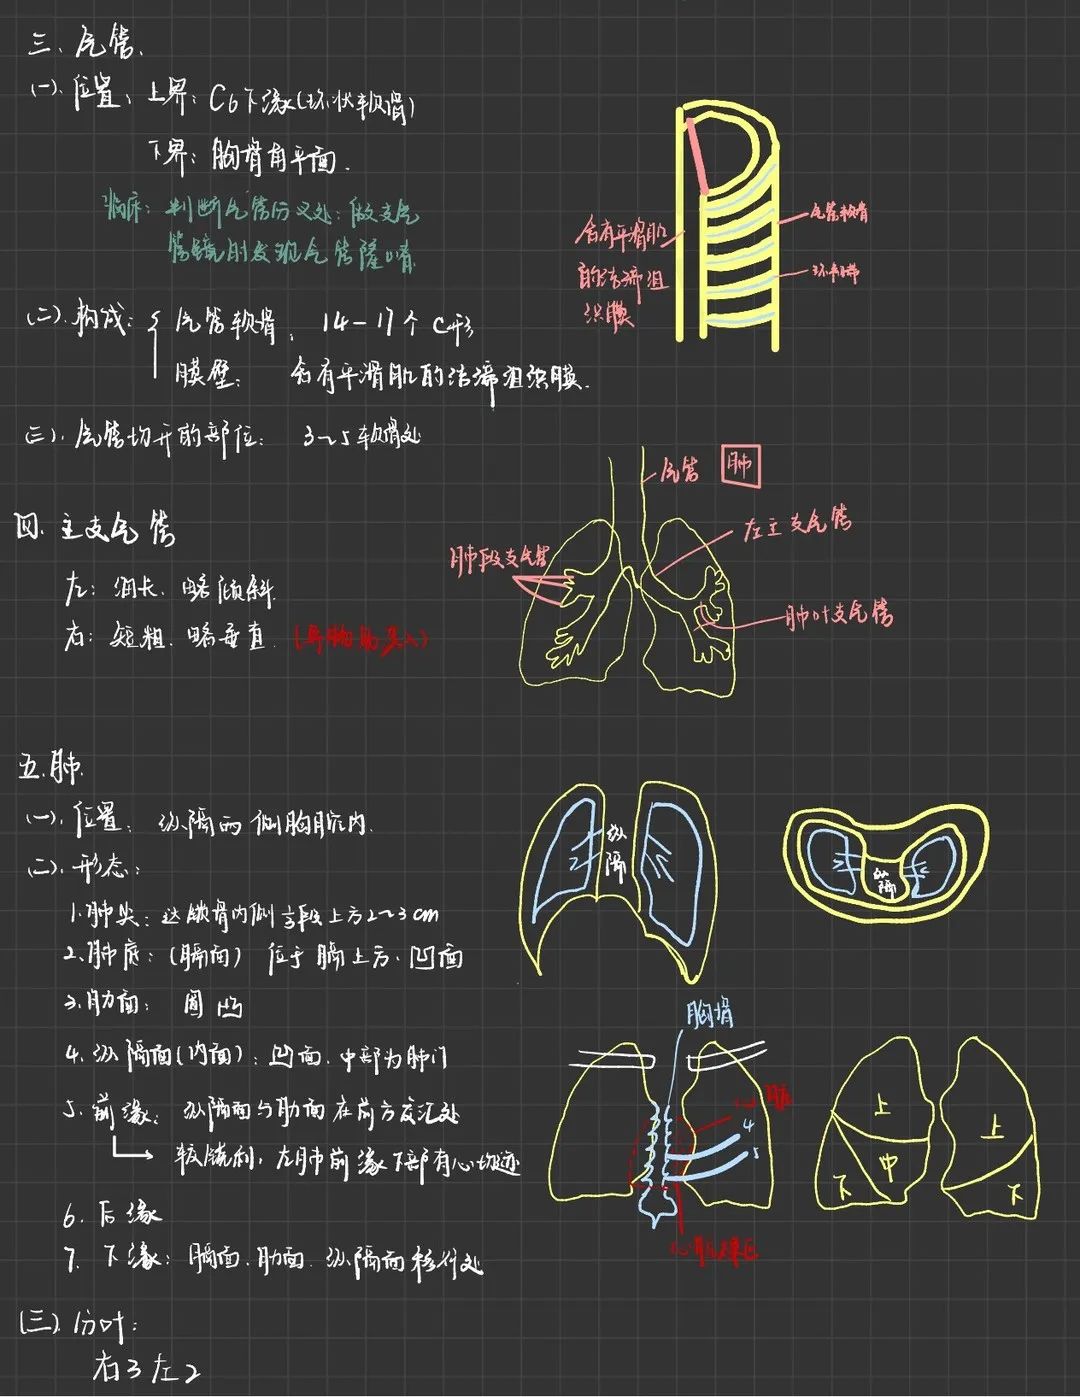 三、气管.
(一).位置、上界：C6下缘(环状软骨)
下界：胸骨角平面.
临床：判断气管分叉处：做支气
管镜时发现气管隆嵴
含有平滑肌
的结缔组
织膜
气管软骨
环韧带
(二).构成：{ 气管软骨： 14-17个 C形
膜壁： 含有平滑肌的结缔组织膜.
(三).气管切开的部位： 3~5软骨处
气管
肺
左主支气管
肺段支气管
肺叶支气管
四.主支气管
左：细长.略倾斜.
右：短粗.略垂直.
五.肺.
(一).位置：纵隔两侧胸腔内.
(二).形态：
1.肺尖：达锁骨内侧⅓段上方2~3cm
2.肺底：(膈面) 位于膈上方.凹面
3.肋面：圆凸
4.纵隔面(内面)：凹面.中部为肺门
5.前缘：纵隔面与肋面在前方交汇处
↳ 较锐利，左肺前缘下部有心切迹
6.后缘
7.下缘：膈面.肋面.纵隔面移行处
纵隔
纵隔
胸骨
4
5
上
中
下
上
下
(三).分叶：
右3左2